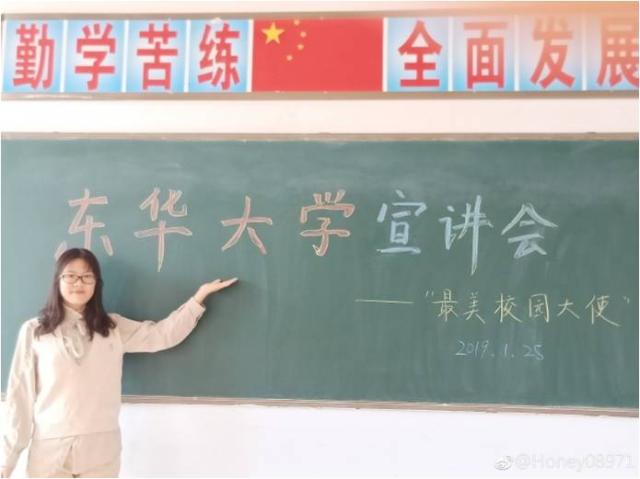 勤学苦练 全面发展
东华大学宣讲会
——"最美校园大使"
2019.1.25
@Honey08971